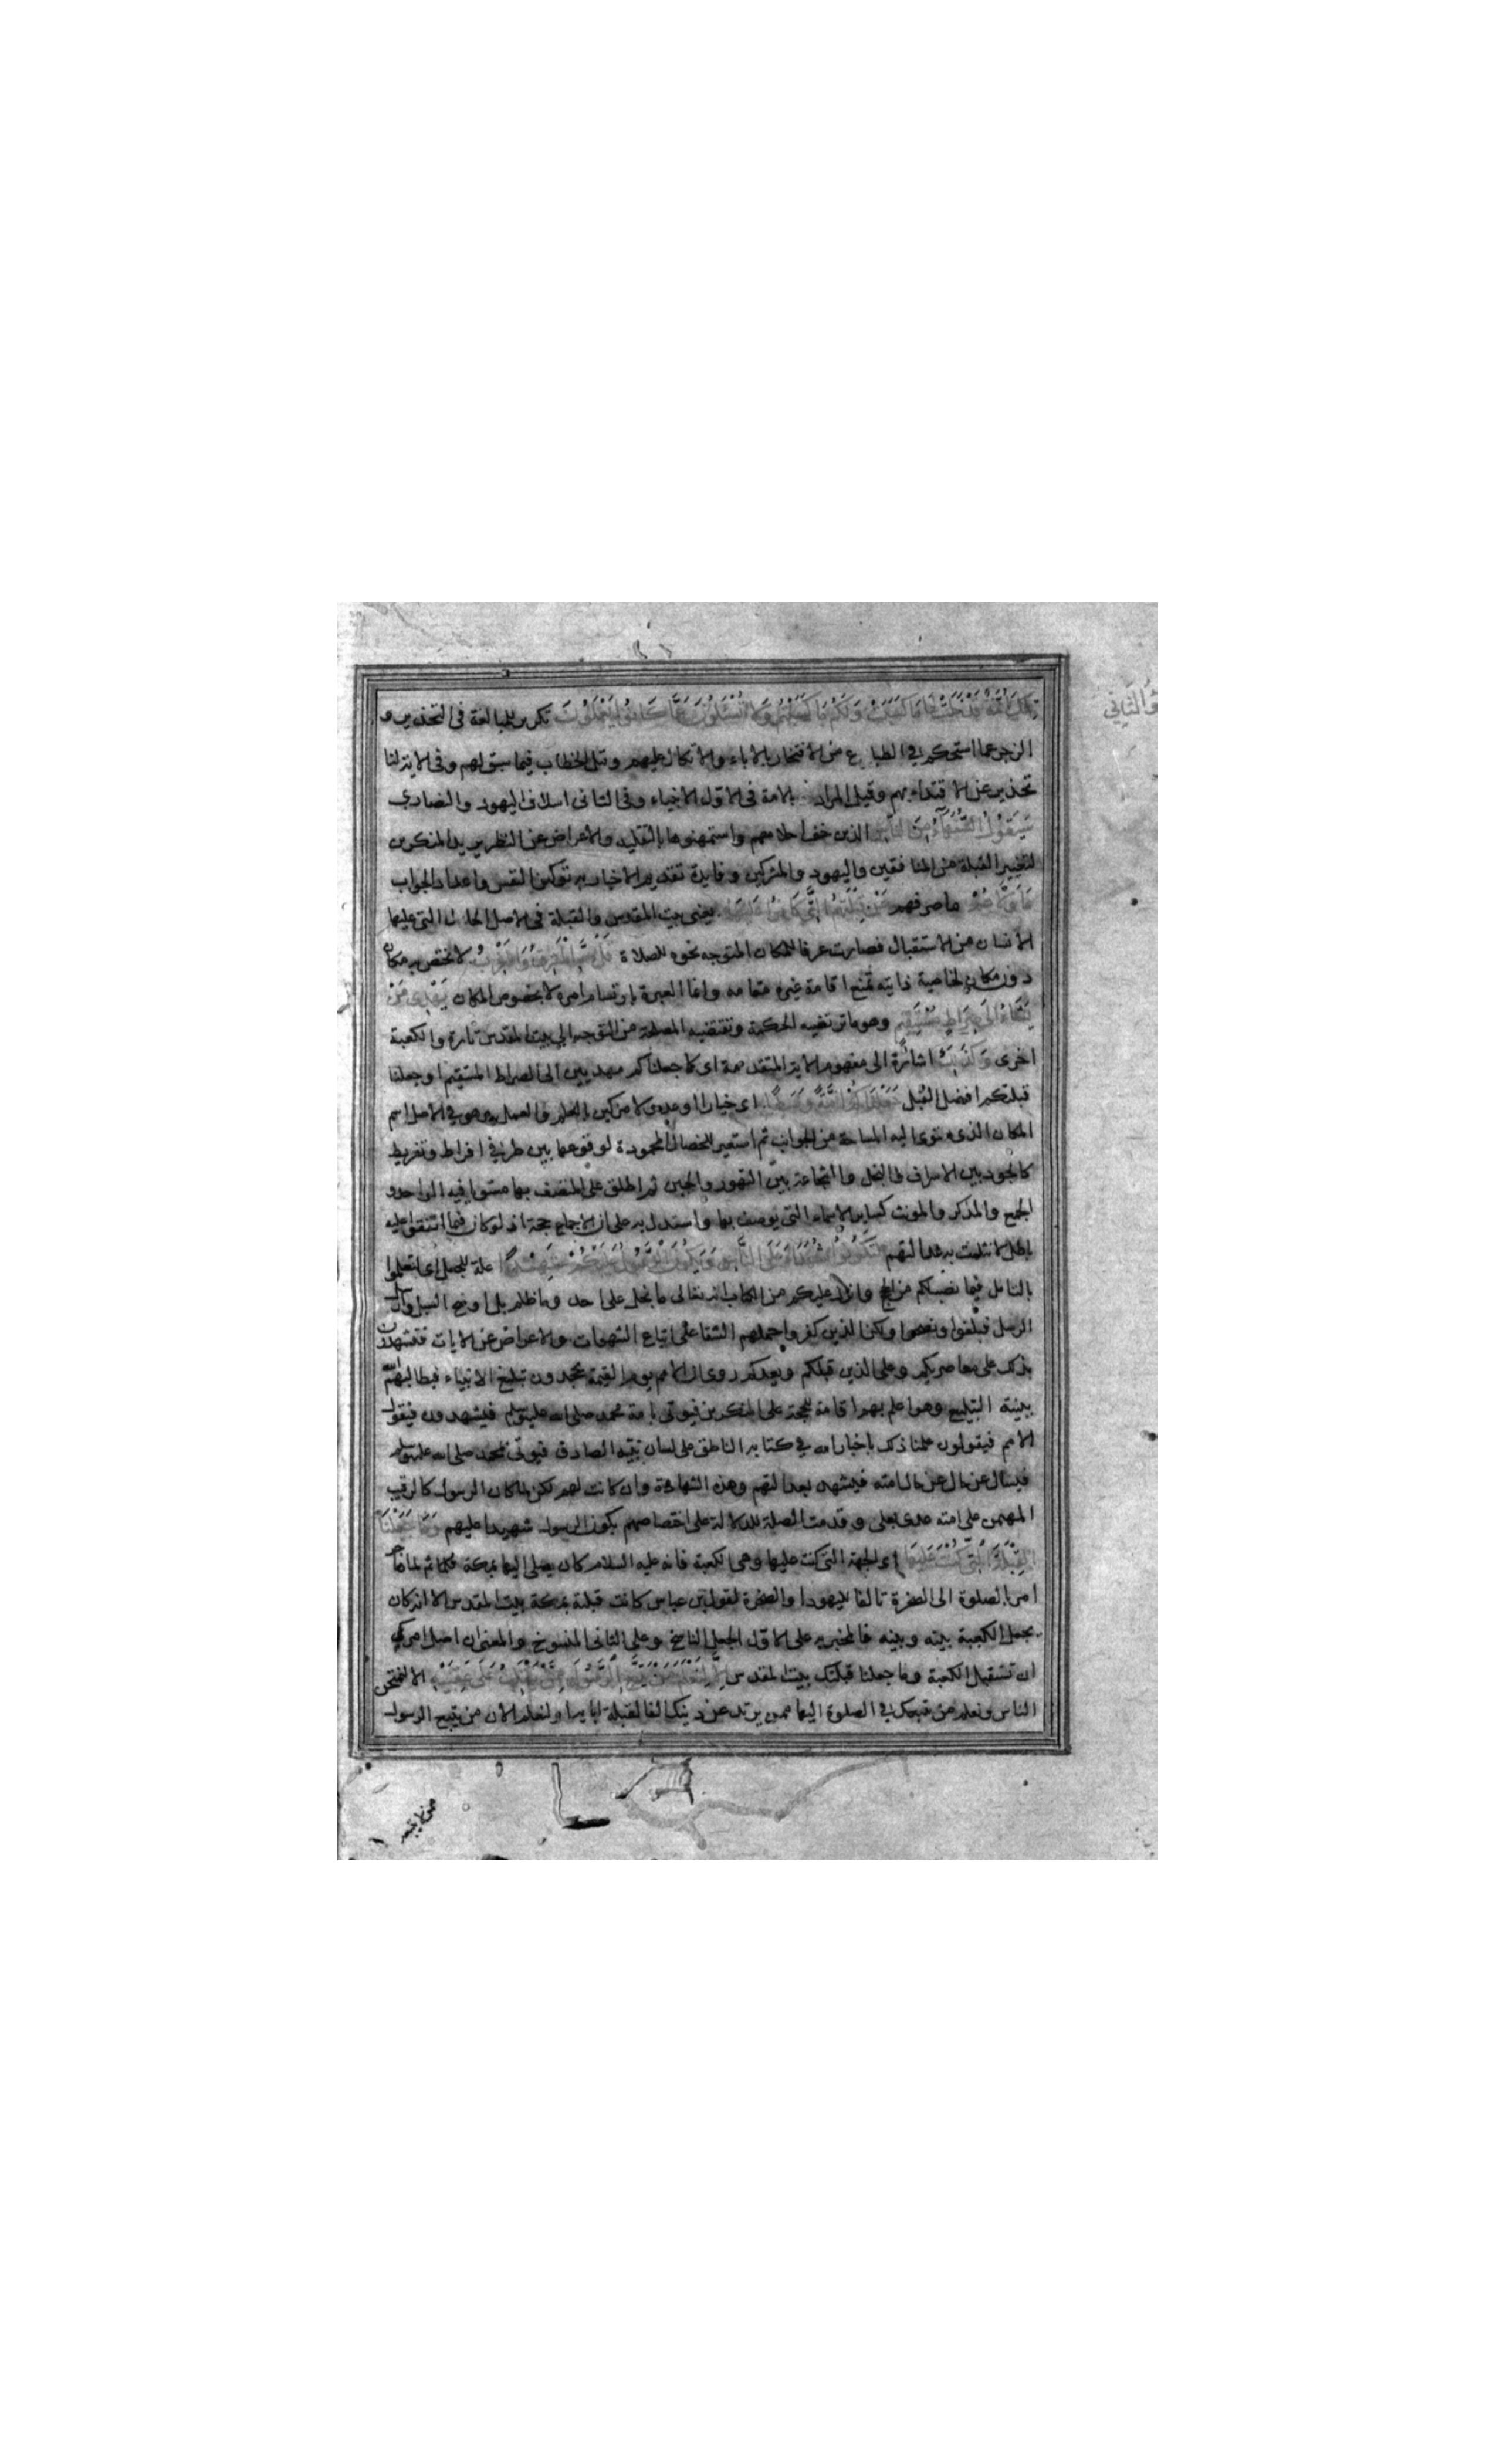 تِلْكَ أُمَّةٌ قَدْ خَلَتْ لَهَا مَا كَسَبَتْ وَلَكُمْ مَا كَسَبْتُمْ وَلَا تُسْئَلُونَ عَمَّا كَانُوا يَعْمَلُونَ تكرير للمبالغة فى التحذير و
الزجر عما استحكم في الطبايع من الافتخار بالاباء والاتكال عليهم وقيل الخطاب فيما سبق لهم وفى الاية لنا
تحذير عن الاقتداء بهم وقيل المراد بالامة فى الاول الانبياء وفى الثانى اسلاف اليهود والنصارى
سَيَقُولُ السُّفَهَآءُ مِنَ النَّاسِ الذين خف احلامهم واستمهنوها بالتقليد والاعراض عن النظر يريد المنكرين
لتغيير القبلة من المنافقين واليهود والمشركين وفايدة تقديم الاخبار به توطين النفس واعداد الجواب
مَا وَلَّاهُمْ ما صرفهم عَنْ قِبْلَتِهِمُ الَّتِى كَانُوا عَلَيْهَا يعنى بيت المقدس والقبلة فى الاصل الحال التى عليها
الانسان من الاستقبال فصارت عرفا للمكان المتوجه نحوه للصلاة قُلْ لِلَّهِ الْمَشْرِقُ وَالْمَغْرِبُ لا يختص به مكان
دون مكان لخاصية ذاتية تمنع اقامة غيره مقامه وانما العبرة بارتسام امره لا بخصوص المكان يَهْدِى مَنْ
يَشَاءُ اِلَى صِرَاطٍ مُسْتَقِيمٍ وهو ما ترتضيه الحكمة وتقتضيه المصلحة من التوجه الى بيت المقدس تارة والكعبة
اخرى وَكَذَلِكَ اشارة الى مفهوم الاية المتقدمة اى كما جعلناكم مهديين الى الصراط المستقيم او جعلنا
قبلتكم افضل القبل جَعَلْنَاكُمْ أُمَّةً وَسَطًا اى خيارا او عدولا مزكين بالعلم والعمل وهو في الاصل اسم
المكان الذى يستوى اليه المساحة من الجوانب ثم استعير للخصال المحمودة لوقوعها بين طرفي افراط وتفريط
كالجود بين الاسراف والبخل والشجاعة بين التهور والجبن ثم اطلق على المتصف بها مستويا فيه الواحد و
الجمع والمذكر والمونث كساير الاسماء التى يوصف بها واستدل به على ان الاجماع حجة اذ لو كان فيما اتفقوا عليه
باطل لانثلمت به عدالتهم لِتَكُونُوا شُهَدَاءَ عَلَى النَّاسِ وَيَكُونَ الرَّسُولُ عَلَيْكُمْ شَهِيدًا علة للجعل اى لتعلموا
بالتامل فيما نصب لكم من الحجج وانزل عليكم من الكتاب انه تعالى ما بخل على احد وما ظلم بل اوضح السبل وارسل
الرسل فبلغوا ونصحوا ولكن الذين كفروا حملهم الشقا على اتباع الشهوات والاعراض عن الايات فتشهدون
بذلك على معاصريكم وعلى الذين قبلكم وبعدكم روى ان الامم يوم القيمة يجحدون تبليغ الانبياء فيطالبهم الله
ببينة التبليغ وهو اعلم بهم اقامة للحجة على المنكرين فيوتى بامة محمد صلى الله عليه وسلم فيشهدون فيقول
الامم فيقولون علمنا ذلك باخبار الله في كتابه الناطق على لسان نبيه الصادق فيوتى بمحمد صلى الله عليه وسلم
فيسال عن حال عن حال امته فيشهد بعدالتهم وهذه الشهادة وان كانت لهم لكن لما كان الرسول كالرقيب
المهيمن على امته عدى بعلى وقدمت الصلة للدلالة على اختصاصهم بكون الرسول شهيدا عليهم وَمَا جَعَلْنَا
الْقِبْلَةَ الَّتِى كُنْتَ عَلَيْهَا اى الجهة التى كنت عليها وهى الكعبة فانه عليه السلام كان يصلى اليها بمكة فلما ثم لما هاجر
امر بالصلوة الى الصخرة تالفا لليهود او الصخرة لقول ابن عباس كانت قبلته بمكة بيت المقدس الا انه كان
يجعل الكعبة بينه وبينه فالمخبر به على الاول الجعل الناسخ وعلى الثانى المنسوخ والمعنى ان اصل امرك
ان تستقبل الكعبة وما جعلنا قبلتك بيت المقدس اِلَّا لِنَعْلَمَ مَنْ يَتَّبِعُ الرَّسُولَ مِمَّنْ يَنْقَلِبُ عَلَى عَقِبَيْهِ الا لنمتحن
الناس ونعلم من يتبعك في الصلوة اليها ممن يرتد عن دينك الفا لقبلة ابايه او لنعلم الان من يتبع الرسول